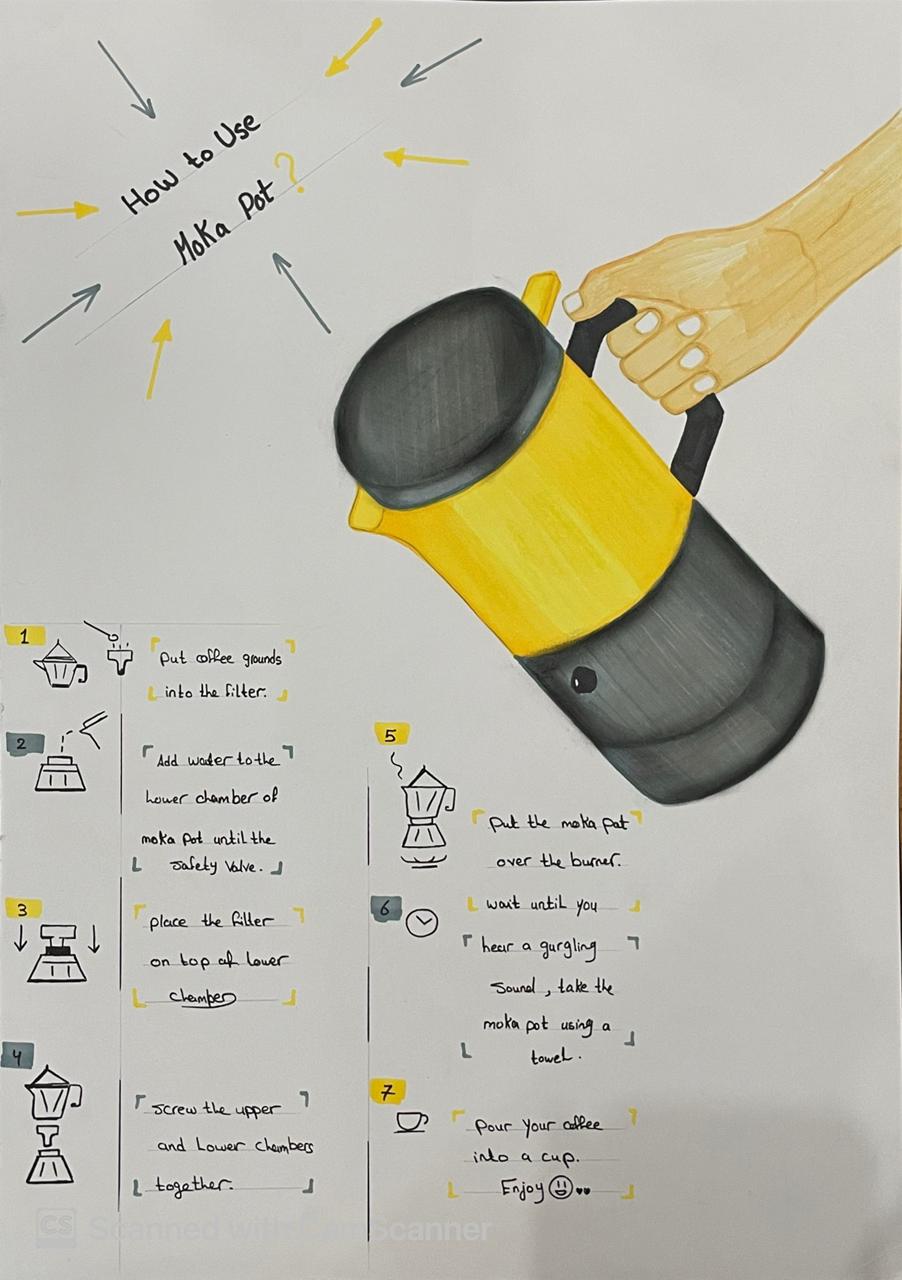 How to Use
Moka Pot?
1
Put coffee grounds
into the filter.
2
Add water to the
Lower chamber of
moka pot until the
Safety Valve.
3
place the filter
on top of lower
chamber
4
Screw the upper
and Lower chambers
together.
5
put the moka pot
over the burner.
wait until you
6
hear a gurgling
Sound, take the
moka pot using a
towel.
7
Pour your coffee
into a cup.
Enjoy
CS Scanned with CamScanner